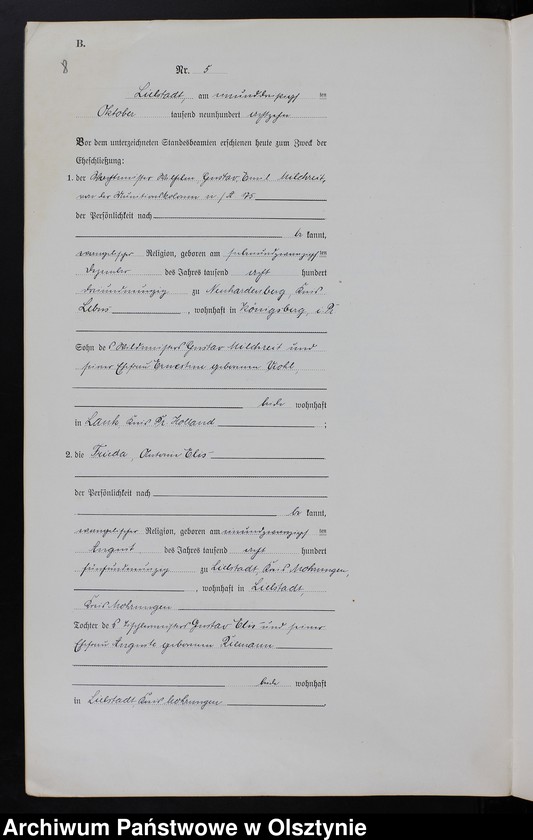 B.
8
Nr. 5
Liebstadt, am einunddreißigs ten
Oktober tausend neunhundert achtzehn
Vor dem unterzeichneten Standesbeamten erschienen heute zum Zweck der
Eheschließung:
1. der Wachtmeister Wilhelm Gustav Emil Milchreit,
von der Munitionskolonne
der Persönlichkeit nach
be kannt,
evangelischer Religion, geboren am siebenundzwanzigs ten
Dezember des Jahres tausend acht hundert
dreiundneunzig zu Neuhardenberg, Kreis
Lebus, wohnhaft in Königsberg, i. Pr
Sohn des Gustav Milchreit und
seiner Ehefrau Ernestine geborenen
beide wohnhaft
in Lauk, Kreis Pr. Holland ;
2. die Frieda, Elis
der Persönlichkeit nach
be kannt,
evangelischer Religion, geboren am einundzwanzigs ten
August des Jahres tausend acht hundert
fünfundneunzig zu Liebstadt, Kreis Mohrungen,
, wohnhaft in Liebstadt,
Kreis Mohrungen
Tochter des Tischlermeisters Gustav Elis und seiner
Ehefrau Auguste geborenen
beide wohnhaft
in Liebstadt, Kreis Mohrungen .
Archiwum Państwowe w Olsztynie